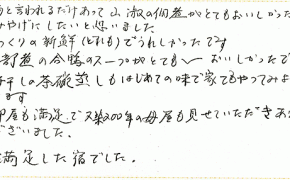 と言われるだけあって山淑の佃煮がとてもおいしかった
みやげにしたいと思いました
っくりの新鮮(どれも)でうれしかったです
部屋の合鴨のスープがとても〜おいしかったで
干しの茶碗蒸しもはじめての味で家でもやってみよ
ます
部屋も満足で又築200年の母屋も見せていただきあ
ございました。
満足した宿でした。